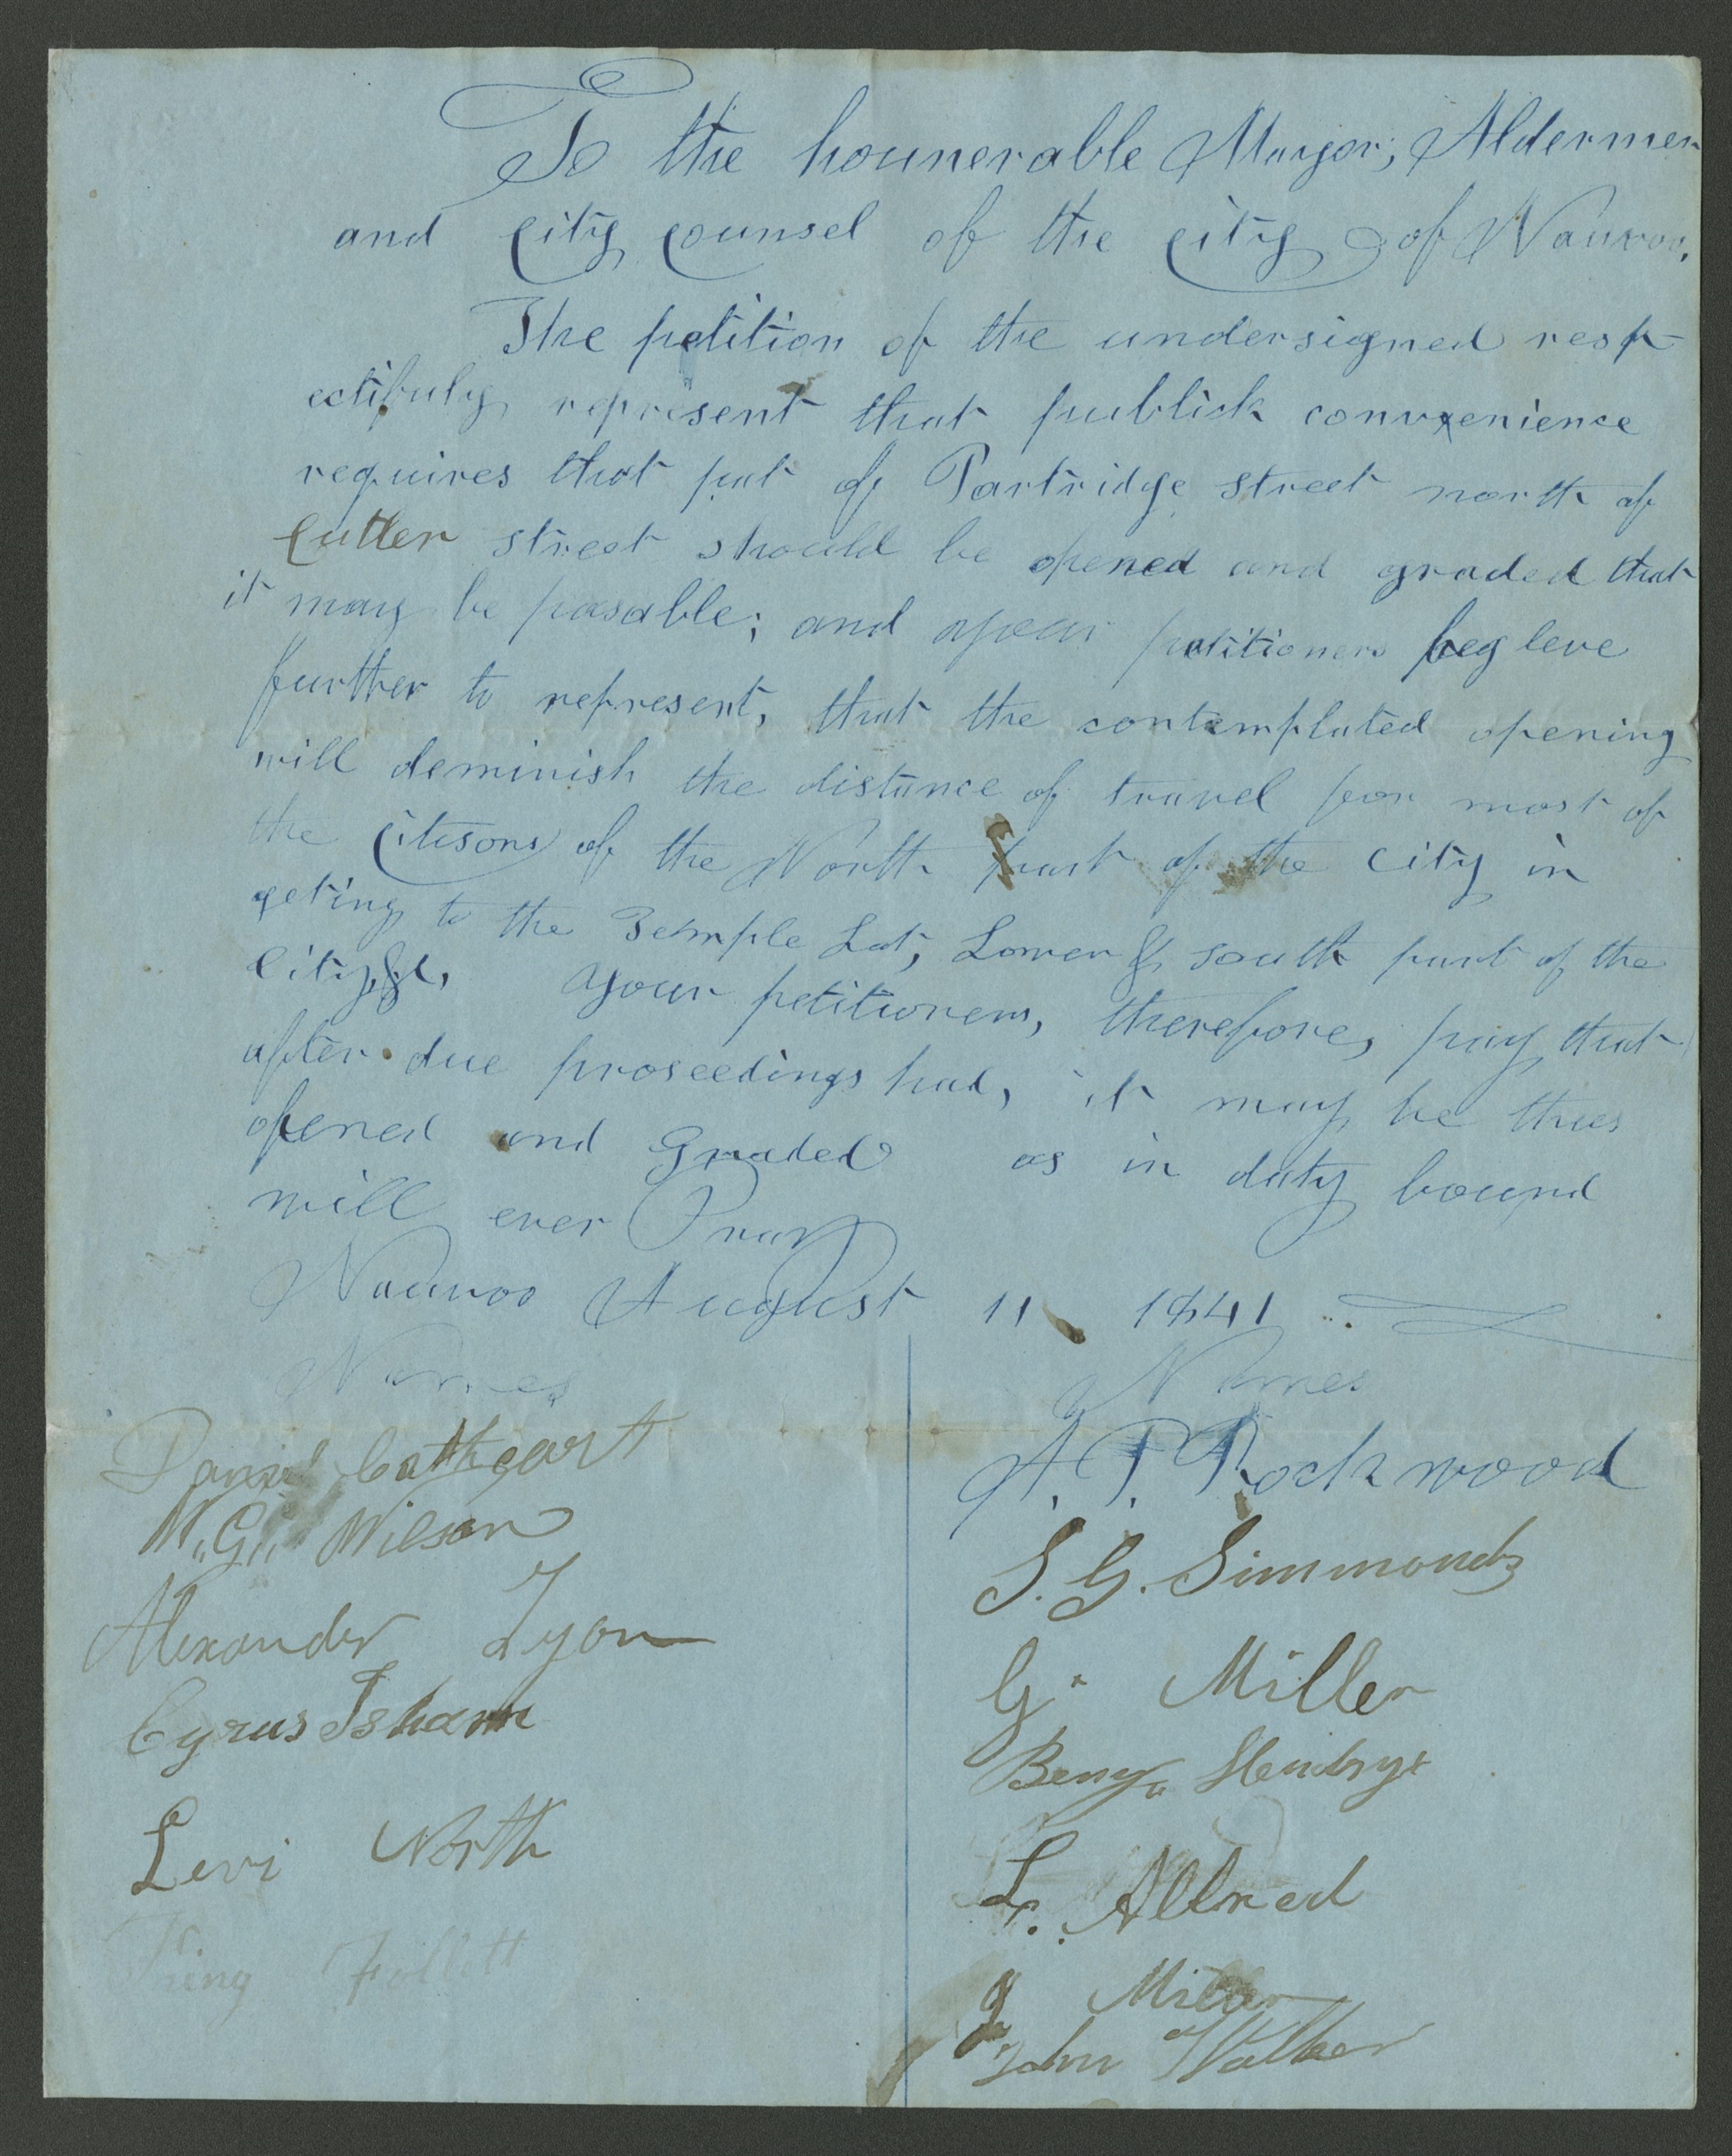 To the hounerable Mayor, Aldermen
and city counsel of the city of Nauvoo.
The petition of the undersigned resp-
ectifuly represent that publick convxenience
requires that pat of Partridge street north of
Cutler street should be opened and graded that
it may be pasable; and your petitioners beg leve
further to represent, that the contemplated opening
will deminish the distance of travel for most of
the citisons of the North part of the city in
geting to the Temple Lot, Lower & south part of the
City, &c, your petitioners, therefore, pray that
after due proseedings had, it may be thus
opened and Graded as in duty bound
will ever Pray
Nauvoo August 11 1841
Names
Daniel Cathcart
W. G. Wilson
Alexander Lyon
Cyrus Isham
Levi North
King Follett
Names
A. P. Rockwood
S. G. Simmonds
G. Miller
Benj.
L. Allred
J Miller
John Walker